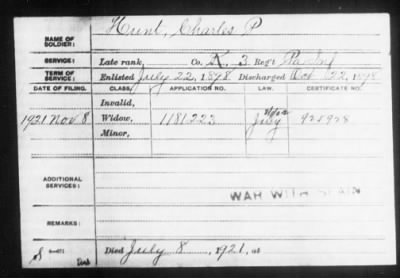 NAME OF SOLDIER: Hunt, Charles P
SERVICE: Late rank, Co. K, 3 Reg't Pa Inf
TERM OF SERVICE: Enlisted July 22, 1898 Discharged Oct 22, 1898
DATE OF FILING. CLASS. APPLICATION NO. LAW. CERTIFICATE NO.
Invalid,
1921 Nov 8 Widow, 1181223 925928
Minor,
ADDITIONAL SERVICES:
WAR WITH SPAIN
REMARKS:
Died July 8, 1921, at